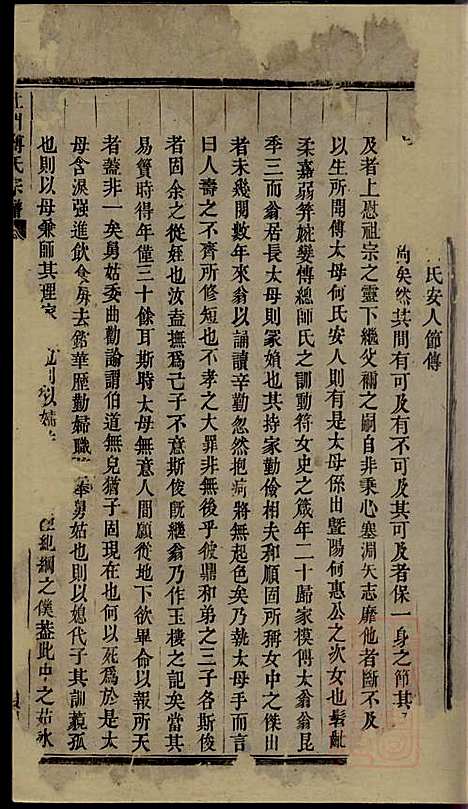 氏安人節傳
矣然其間有可及有不可及其可及者保一身之節其
及者上慰祖宗之靈下繼父禰之嗣自非秉心塞淵矢志靡他者斷不及
以生所聞傅太母何氏安人則有是太母係出暨陽何惠公之次女也髫齔
柔嘉弱笄婉孌傅總師氏之訓動符女史之箴年二十歸家模傅太翁翁昆
季三而翁居長太母則冢婦也其持家勤儉相夫和順固所稱女中之傑出
者未幾閱數年來翁以誦讀辛勤忽然抱病將無起色矣乃執太母手而言
曰人壽之不齊所修短也不孝之大罪非無後乎彼鼎和弟之三子各斯俊
者固余之從姪也汝盍撫爲己子不意斯俊旣繼翁乃作玉樓之記矣當其
易簀時得年僅三十餘耳斯時太母無意人間願從地下欲畢命以報所天
者蓋非一矣舅姑委曲勸諭謂伯道無兒猶子固現在也何以死爲於是太
母含淚強進飲食屏去鉛華歷勤婦職奉舅姑也則以媳代子其訓藐孤
也則以母兼師其理家 紀綱之僕蓋此中之茹氷
傅氏宗譜